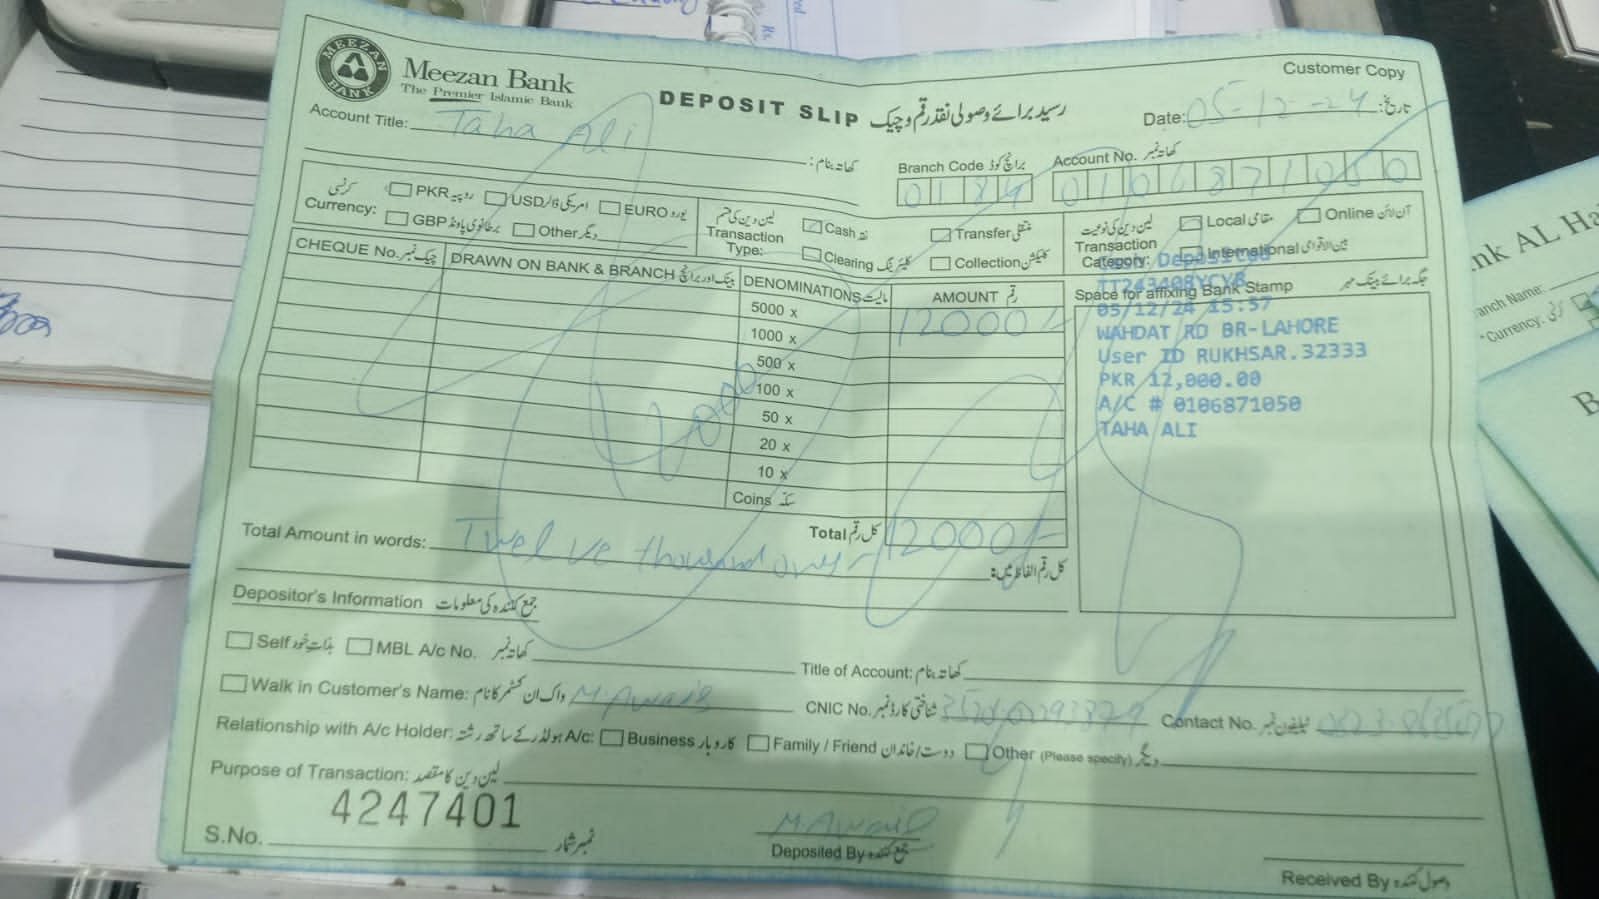 MEEZAN BANK
Meezan Bank
The Premier Islamic Bank
DEPOSIT SLIP رسید برائے وصولی نقد رقم و چیک
Customer Copy
Date: 05-12-24 تاریخ:
Account Title: Taha Ali کھاتہ بنام:
Branch Code برانچ کوڈ Account No. کھاتہ نمبر
0184 0106871050
کرنسی
Currency:
PKR روپیہ USD امریکی ڈالر EURO یورو
GBP برطانوی پاؤنڈ Other دیگر
لین دین کی قسم
Transaction Type:
Cash نقد Transfer منتقلی
Clearing کلیئرنگ Collection کلیکشن
لین دین کی نوعیت
Transaction Category:
Local مقامی Online آن لائن
International بین الاقوامی
CHEQUE No. چیک نمبر DRAWN ON BANK & BRANCH بینک اور برانچ DENOMINATIONS مالیت AMOUNT رقم
5000 x 12000/-
1000 x
500 x
100 x
50 x
20 x
10 x
Coins سکہ
Total کل رقم 12000/-
Space for affixing Bank Stamp جگہ برائے بینک مہر
05/12/24 15:57
WAHDAT RD BR-LAHORE
User ID RUKHSAR.32333
PKR 12,000.00
A/C # 0106871050
TAHA ALI
Total Amount in words: Twelve thousand only کل رقم الفاظ میں:
Depositor's Information جمع کنندہ کی معلومات
Self بذات خود MBL A/c No. کھاتہ نمبر Title of Account: کھاتہ بنام:
Walk in Customer's Name: واک ان کسٹمر کا نام: M. Awais CNIC No. شناختی کارڈ نمبر Contact No. ٹیلیفون نمبر
Relationship with A/c Holder: A/c ہولڈر کے ساتھ رشتہ: Business کاروبار Family / Friend دوست/خاندان Other (Please specify) دیگر
Purpose of Transaction: لین دین کا مقصد:
4247401
S.No. نمبر شمار
M. Awais
Deposited By جمع کنندہ
Received By وصول کنندہ
nk AL Ha
anch Name:
*Currency: